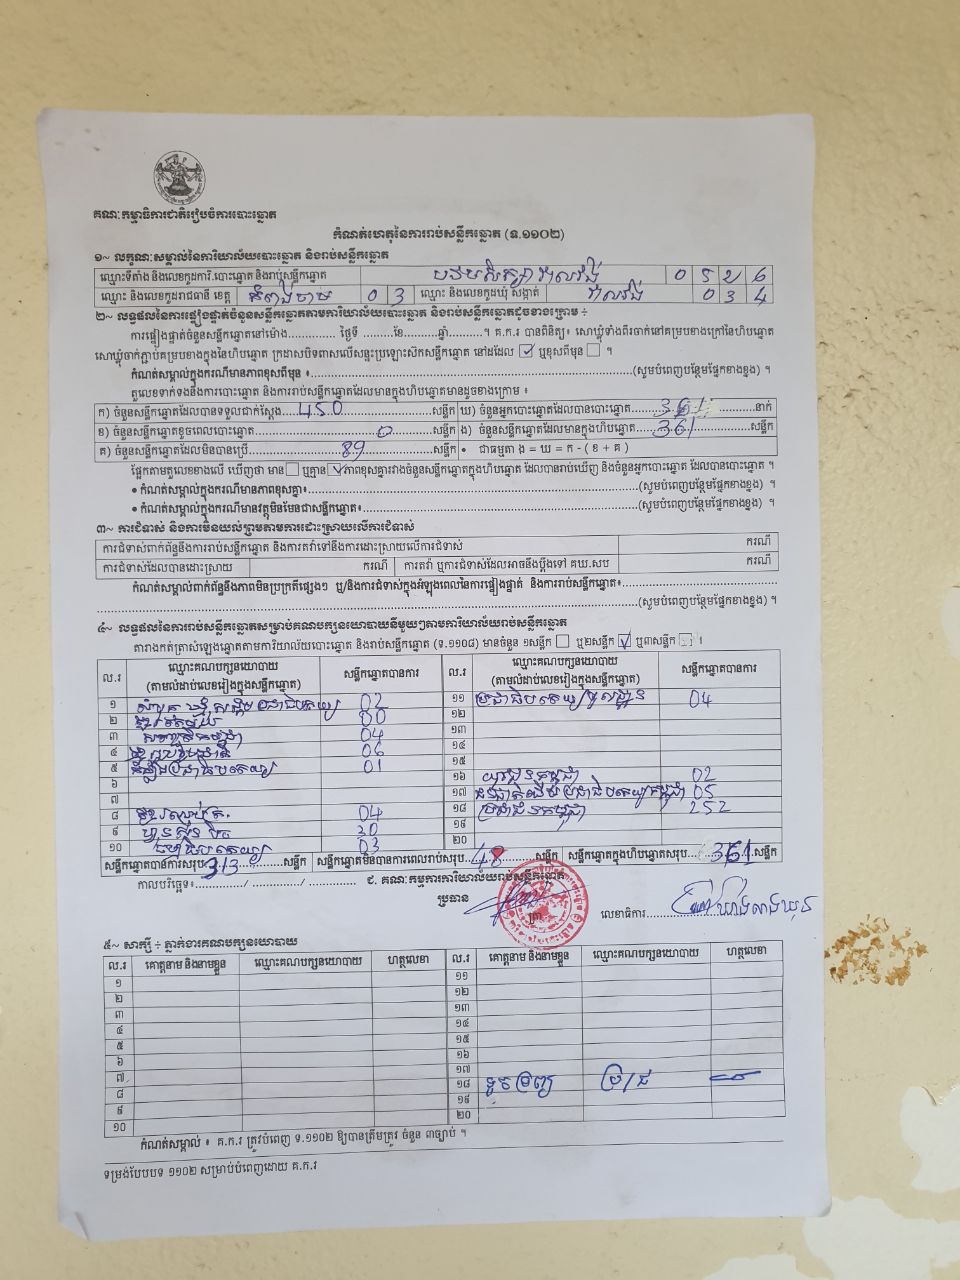 គណៈកម្មាធិការជាតិរៀបចំការបោះឆ្នោត
កំណត់ហេតុនៃការរាប់សន្លឹកឆ្នោត (ទ.១១០២)
១~ លក្ខណៈសម្គាល់នៃការិយាល័យបោះឆ្នោត និងរាប់សន្លឹកឆ្នោត
ឈ្មោះទីតាំង និងលេខកូដការិ.បោះឆ្នោត និងរាប់សន្លឹកឆ្នោត បឋមសិក្សា 0 5 2 6
ឈ្មោះ និងលេខកូដរាជធានី ខេត្ត កំពង់ចាម 0 3 ឈ្មោះ និងលេខកូដឃុំ សង្កាត់ 0 3 4
២~ លទ្ធផលនៃការផ្ទៀងផ្ទាត់ចំនួនសន្លឹកឆ្នោតតាមការិយាល័យបោះឆ្នោត និងរាប់សន្លឹកឆ្នោតដូចខាងក្រោម ÷
ការផ្ទៀងផ្ទាត់ចំនួនសន្លឹកឆ្នោតនៅម៉ោង............... ថ្ងៃទី .........ខែ.........ឆ្នាំ.........។ គ.ក.រ បានពិនិត្យ៖ សោឃ្លុំទាំងពីរចាក់នៅគម្របខាងក្រៅនៃហិបឆ្នោត
សោឃ្លុំចាក់ភ្ជាប់គម្របខាងក្នុងនៃហិបឆ្នោត ក្រដាសបិទពាសលើសន្ទះប្រឡោះស៊កសន្លឹកឆ្នោត នៅដដែល ✓ ឬខុសពីមុន ។
កំណត់សម្គាល់ក្នុងករណីមានភាពខុសពីមុន ៖...............(សូមបំពេញបន្ថែមផ្នែកខាងខ្នង) ។
តួលេខទាក់ទងនឹងការបោះឆ្នោត និងការរាប់សន្លឹកឆ្នោតដែលមានក្នុងហិបឆ្នោតមានដូចខាងក្រោម ៖
ក) ចំនួនសន្លឹកឆ្នោតដែលបានទទួលជាក់ស្តែង....450....សន្លឹក ឃ) ចំនួនអ្នកបោះឆ្នោតដែលបានបោះឆ្នោត....361....នាក់
ខ) ចំនួនសន្លឹកឆ្នោតខូចពេលបោះឆ្នោត....0....សន្លឹក ង) ចំនួនសន្លឹកឆ្នោតដែលមានក្នុងហិបឆ្នោត....361....សន្លឹក
គ) ចំនួនសន្លឹកឆ្នោតដែលមិនបានប្រើ....89....សន្លឹក • ជាធម្មតា ង = ឃ = ក - ( ខ + គ )
ផ្អែកតាមតួលេខខាងលើ ឃើញថា មាន ឬគ្មាន ✓ ភាពខុសគ្នារវាងចំនួនសន្លឹកឆ្នោតក្នុងហិបឆ្នោត ដែលបានរាប់ឃើញ និងចំនួនអ្នកបោះឆ្នោត ដែលបានបោះឆ្នោត ។
• កំណត់សម្គាល់ក្នុងករណីមានភាពខុសគ្នា៖...............(សូមបំពេញបន្ថែមផ្នែកខាងខ្នង) ។
• កំណត់សម្គាល់ក្នុងករណីមានវត្ថុមិនមែនជាសន្លឹកឆ្នោត៖...............(សូមបំពេញបន្ថែមផ្នែកខាងខ្នង) ។
៣~ ការជំទាស់ និងការមិនយល់ព្រមតាមការដោះស្រាយលើការជំទាស់
ការជំទាស់ពាក់ព័ន្ធនឹងការរាប់សន្លឹកឆ្នោត និងការតវ៉ាទៅនឹងការដោះស្រាយលើការជំទាស់ ករណី
ការជំទាស់ដែលបានដោះស្រាយ ករណី ការតវ៉ា ឬការជំទាស់ដែលអាចនឹងប្តឹងទៅ គឃ.សប ករណី
កំណត់សម្គាល់ពាក់ព័ន្ធនឹងភាពមិនប្រក្រតីផ្សេងៗ ឬ/និងការជំទាស់ក្នុងអំឡុងពេលនៃការផ្ទៀងផ្ទាត់ និងការរាប់សន្លឹកឆ្នោត៖...............
...............(សូមបំពេញបន្ថែមផ្នែកខាងខ្នង) ។
៤~ លទ្ធផលនៃការរាប់សន្លឹកឆ្នោតសម្រាប់គណបក្សនយោបាយនីមួយៗតាមការិយាល័យរាប់សន្លឹកឆ្នោត
តារាងកត់ត្រាសំឡេងឆ្នោតតាមការិយាល័យបោះឆ្នោត និងរាប់សន្លឹកឆ្នោត (ទ.១១០៨) មានចំនួន ១សន្លឹក ឬ២សន្លឹក ✓ ឬ៣សន្លឹក ។
ល.រ ឈ្មោះគណបក្សនយោបាយ (តាមលំដាប់លេខរៀងក្នុងសន្លឹកឆ្នោត) សន្លឹកឆ្នោតបានការ ល.រ ឈ្មោះគណបក្សនយោបាយ (តាមលំដាប់លេខរៀងក្នុងសន្លឹកឆ្នោត) សន្លឹកឆ្នោតបានការ
១ សំបុកឃ្មុំសង្គមប្រជាធិបតេយ្យ 02 ១១ ប្រជាធិបតេយ្យមូលដ្ឋាន 04
២ ខ្មែរ 00 ១២
៣ សញ្ជាតិកម្ពុជា 04 ១៣
៤ ខ្មែររួបរួមជាតិ 06 ១៤
៥ ប្រជាធិបតេយ្យ 01 ១៥
៦ ១៦ យុវជនកម្ពុជា 02
៧ ១៧ ជនជាតិដើមប្រជាធិបតេយ្យកម្ពុជា 05
៨ 04 ១៨ ប្រជាជនកម្ពុជា 252
៩ ហ្វ៊ុនស៊ិនប៉ិច 30 ១៩
១០ ប្រជាធិបតេយ្យ 03 ២០
សន្លឹកឆ្នោតបានការសរុប..313....សន្លឹក សន្លឹកឆ្នោតមិនបានការពេលរាប់សរុប..48....សន្លឹក សន្លឹកឆ្នោតក្នុងហិបឆ្នោតសរុប....361.សន្លឹក
កាលបរិច្ឆេទ៖............/ ............/ ............ ៩. គណៈកម្មការការិយាល័យរាប់សន្លឹកឆ្នោត
ប្រធាន ត្រា លេខាធិការ...............
៥~ សាក្សី ÷ ភ្នាក់ងារគណបក្សនយោបាយ
ល.រ គោត្តនាម និងនាមខ្លួន ឈ្មោះគណបក្សនយោបាយ ហត្ថលេខា ល.រ គោត្តនាម និងនាមខ្លួន ឈ្មោះគណបក្សនយោបាយ ហត្ថលេខា
១ ១១
២ ១២
៣ ១៣
៤ ១៤
៥ ១៥
៦ ១៦
៧ ១៧
៨ ១៨
៩ ១៩
១០ ២០
កំណត់សម្គាល់ ៖ គ.ក.រ ត្រូវបំពេញ ទ.១១០២ ឱ្យបានត្រឹមត្រូវ ចំនួន ៣ច្បាប់ ។
ទម្រង់បែបបទ ១១០២ សម្រាប់បំពេញដោយ គ.ក.រ